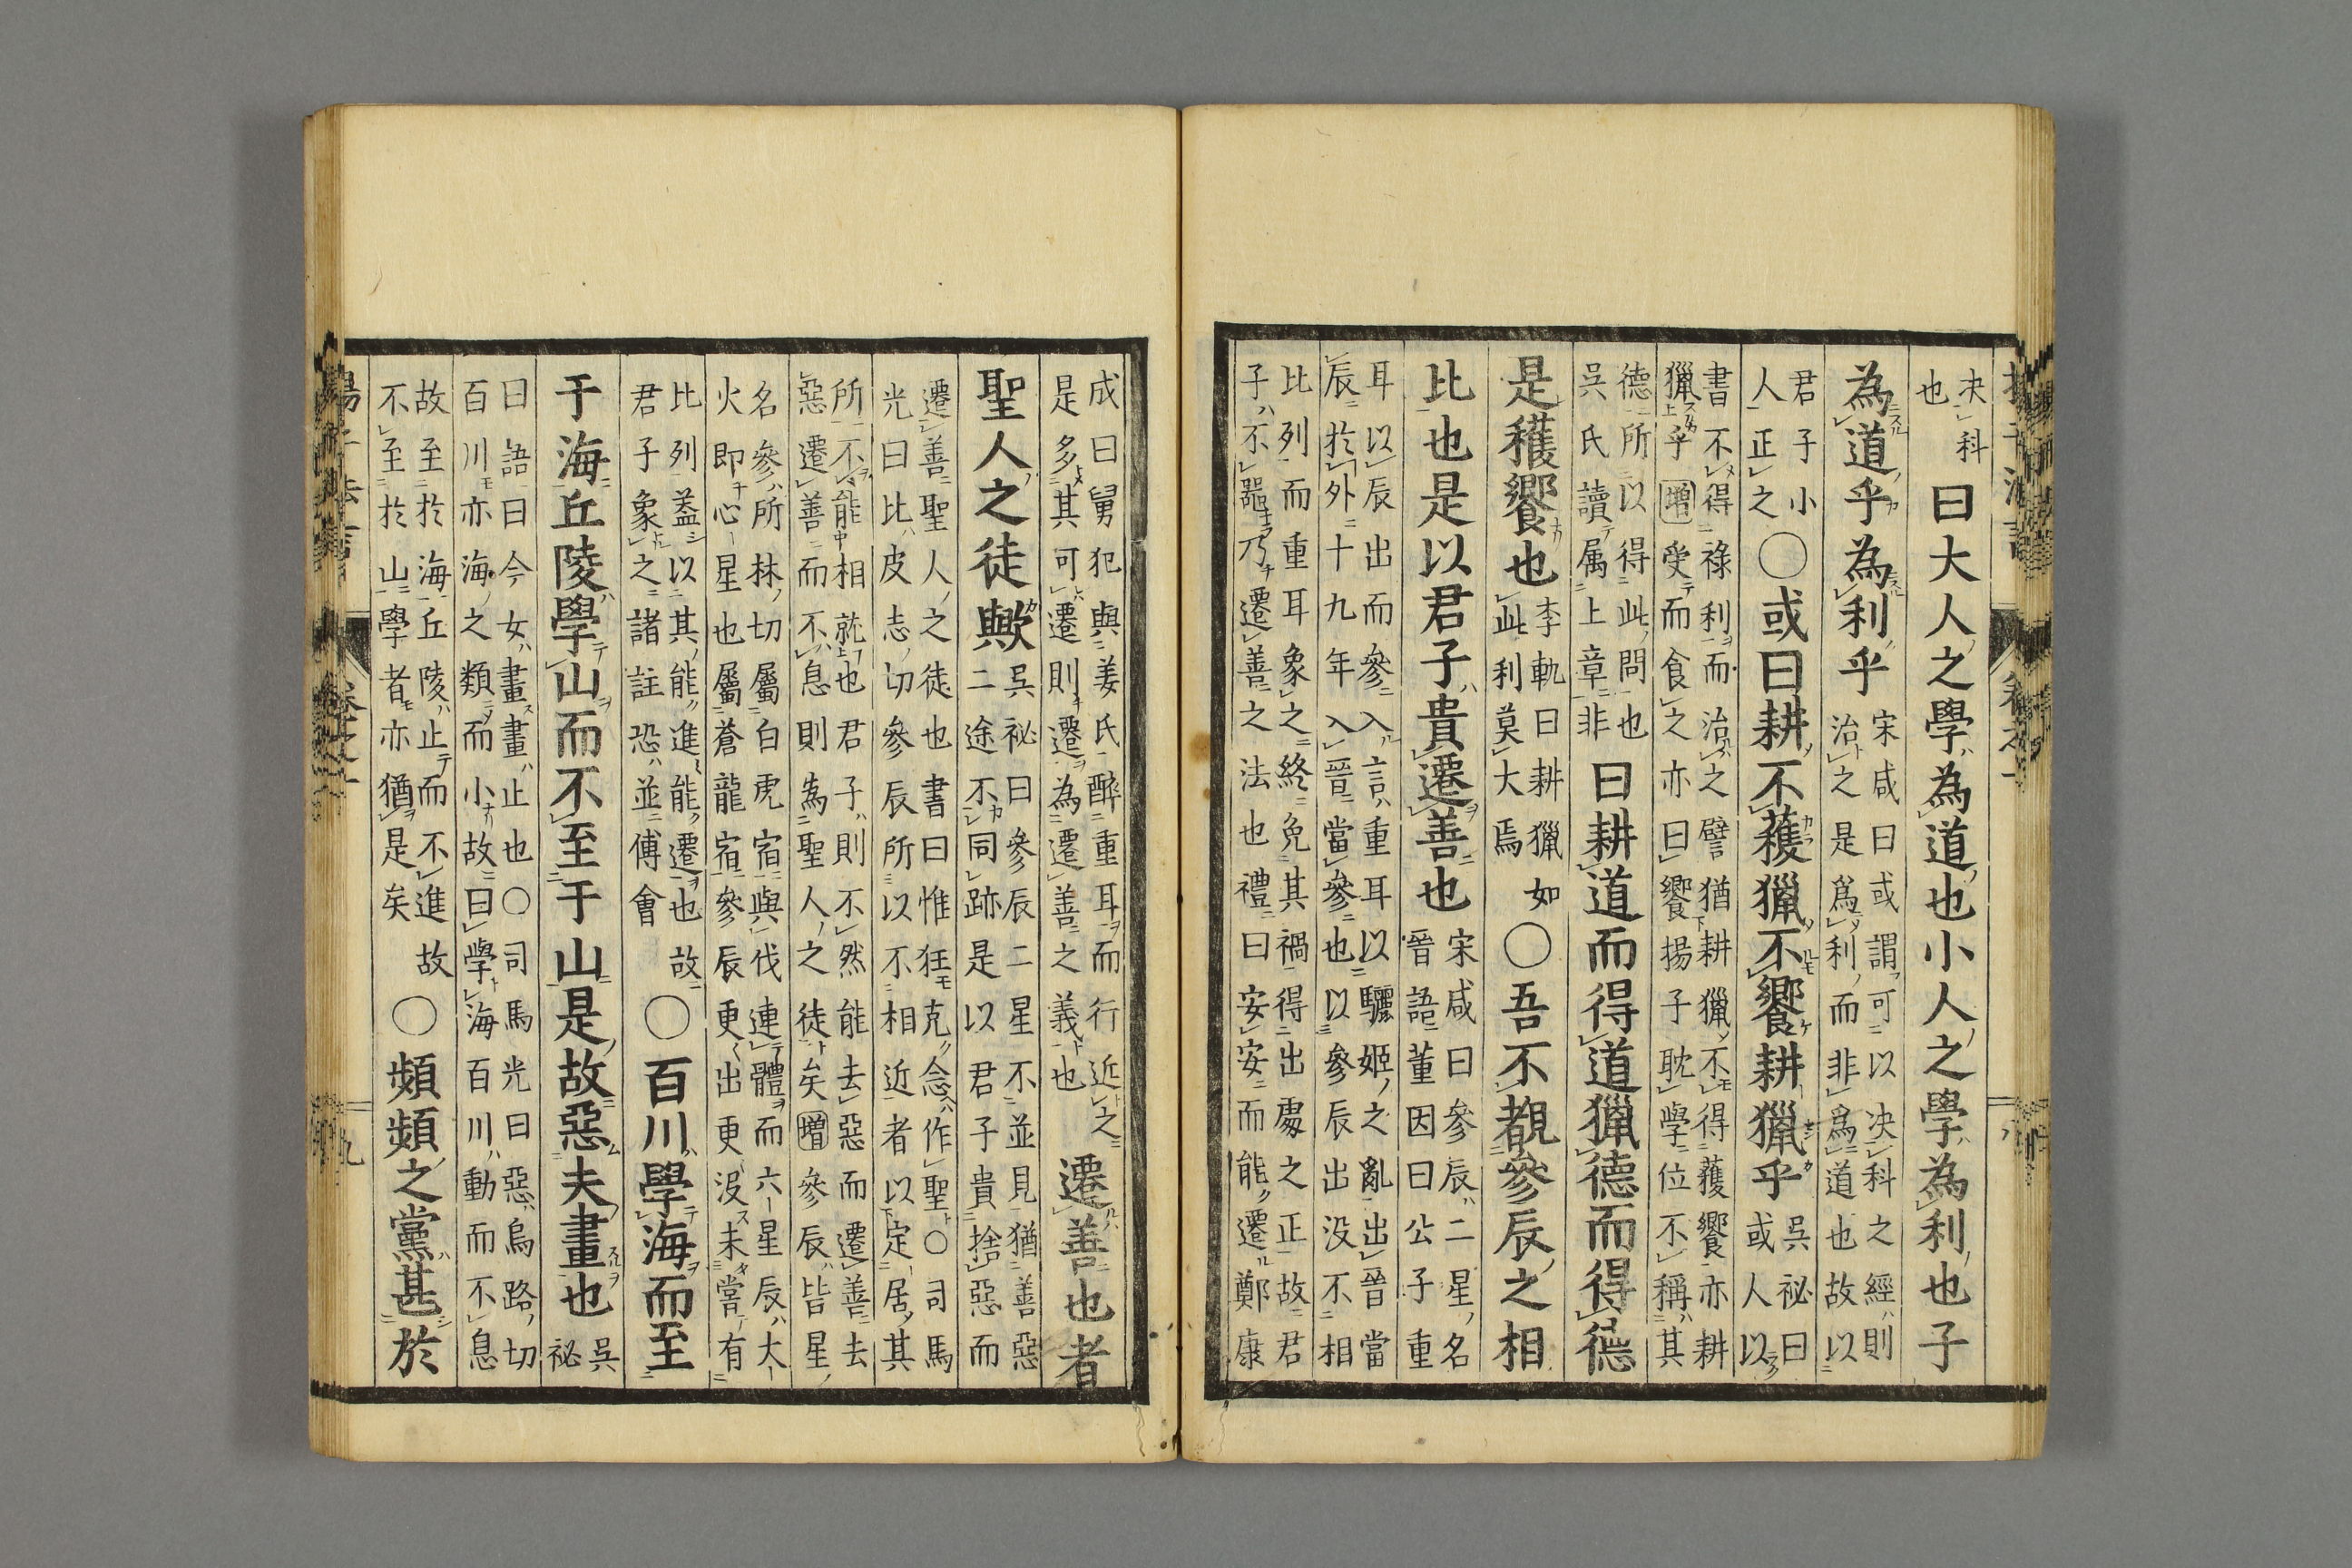 决科
也
曰大人之學為道也小人之學為利也子
為道乎為利乎
宋咸曰或謂可以决科之經則
治之是爲利而非爲道也故以
君子小
人正之
〇或曰耕不穫獵不饗耕獵乎
吳祕曰
或人以
書不得祿利而治之譬猶耕獵不得穫饗亦耕
獵乎增受而食之亦曰饗揚子耽學位不稱其
德所以得此問也
吳氏讀属上章非
曰耕道而得道獵德而得德
是穫饗也
李軌曰耕獵如
此利莫大焉
〇吾不覩參辰之相
比也是以君子貴遷善也
宋咸曰參辰二星名
晉語董因曰公子重
耳以辰出而參入言重耳以驪姬之亂出晉當
辰於外十九年入晉當參也以參辰出没不相
比列而重耳象之終免其禍得出處之正故君
子不噐乃遷善之法也禮曰安安而能遷鄭康
成曰舅犯與姜氏醉重耳而行近之
是多其可遷則遷為遷善之義也
遷善也者
聖人之徒歟
吳祕曰參辰二星不並見猶善惡
二途不同跡是以君子貴捨惡而
遷善聖人之徒也書曰惟狂克念作聖〇司馬
光曰比皮志切參辰所以不相近者以定居其
所不能相就也君子則不然能去惡而遷善去
惡遷善而不息則為聖人之徒矣增參辰皆星
名參所林切屬白虎宿與伐連體而六星辰大
火即心星也屬蒼龍宿參辰更出更没未嘗有
比列葢以其能進能遷也故
君子象之諸註恐並傅會
〇百川學海而至
于海丘陵學山而不至于山是故惡夫畫也
吳
祕
曰語曰今女畫畫止也〇司馬光曰惡烏路切
百川亦海之類而小故曰學海百川動而不息
故至於海丘陵止而不進故
不至於山學者亦猶是矣
〇頻頻之黨甚於